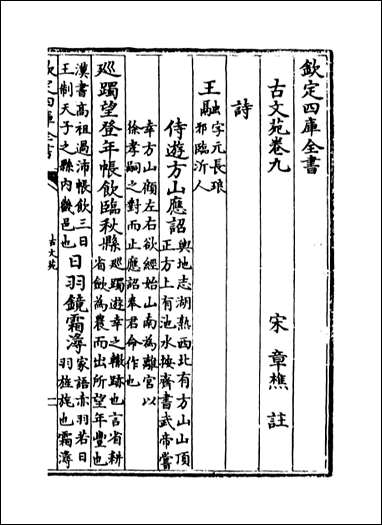 欽定四庫全書
古文苑卷九
宋 章樵 註
詩
王融字元長琅
邪臨沂人
侍遊方山應詔輿地志湖熟西北有方山山頂
正方上有池水按齊書武帝嘗
幸方山顧左右欲經始山南為離宮以
徐孝嗣之對而止應詔奉君命作也
巡躅望登年帳飲臨秋縣巡躅遊幸之轍跡也言省耕
省飲為農而出所望年豐也
漢書高祖過沛帳飲三日
王制天子之縣內畿邑也
日羽鏡霜潯家語赤羽若日
羽旌旄也霜潯
欽定四庫全書
古文苑